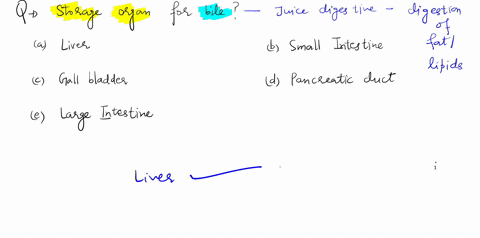 Q→ Storage organ for bile? — Juice digestive – digestion of fat/ lipids
(a) Liver
(b) Small Intestine
(c) Gall bladder
(d) Pancreatic duct
(e) Large Intestine
Liver